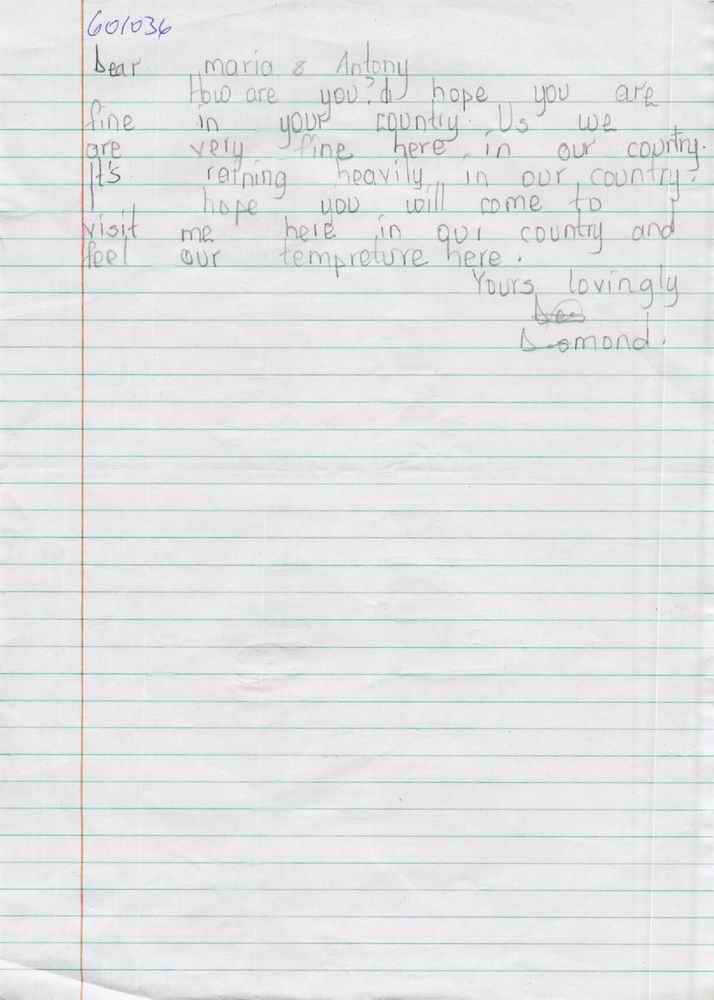 601036
Dear maria & Antony
How are you? I hope you are
fine in your country. Us we
are very fine here in our country.
It's raining heavily in our country.
I hope you will come to
visit me here in our country and
feel our tempreture here.
Yours lovingly
Desmond.